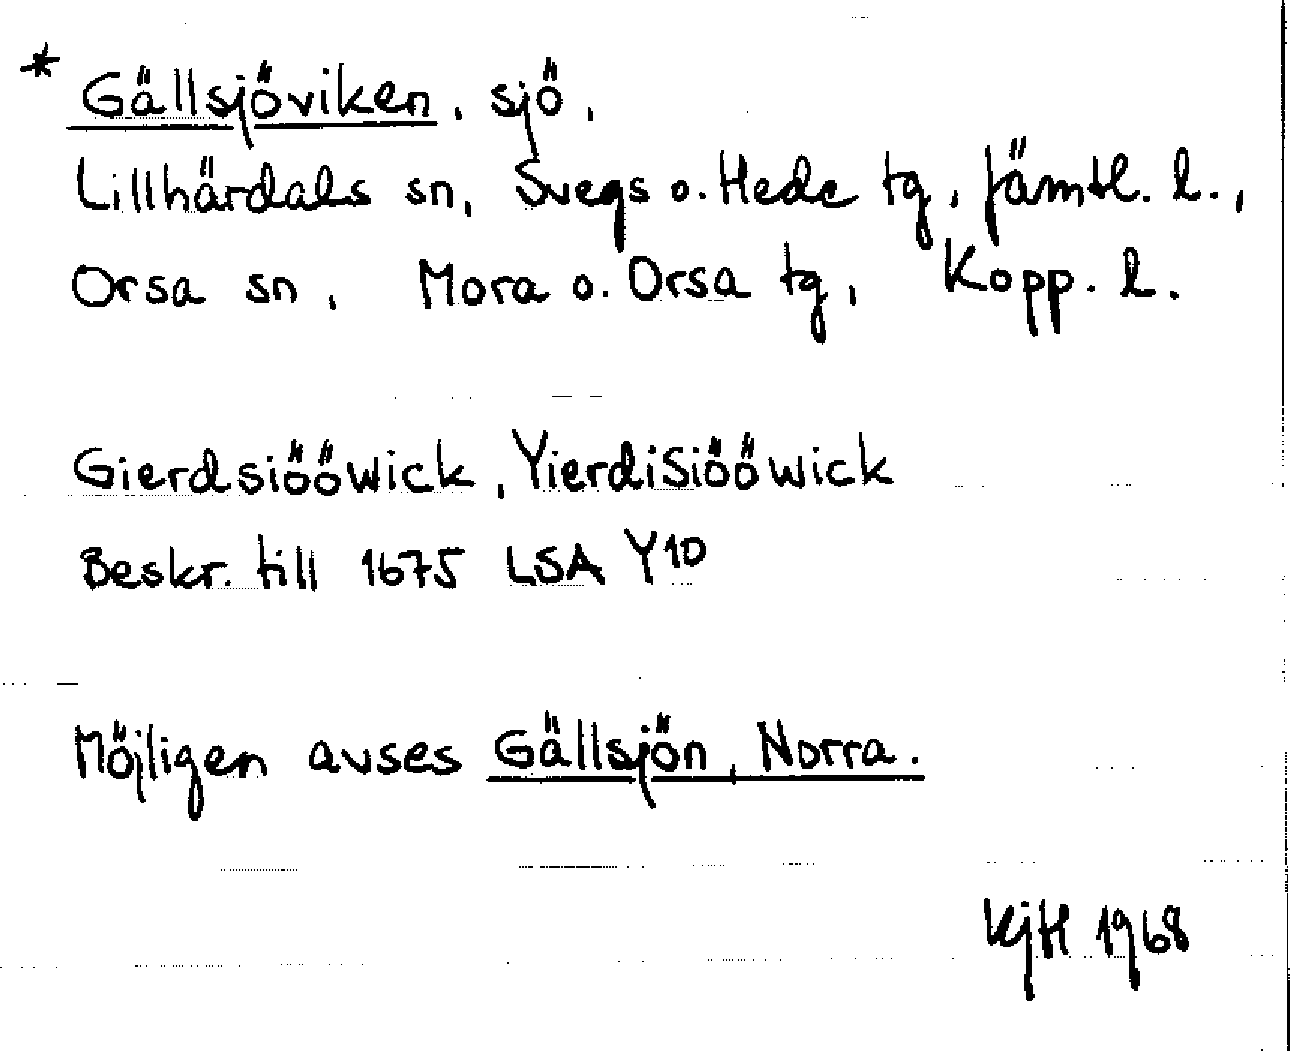 * Gällsjöviken, sjö,
Lillhärdals sn, Svegs o. Hede tg, Jämtl. l.,
Orsa sn, Mora o. Orsa tg, Kopp. l.
Gierdsiööwick, YierdiSiööwick
Beskr. till 1675 LSA Y10
Möjligen avses Gällsjön, Norra.
KjH 1968